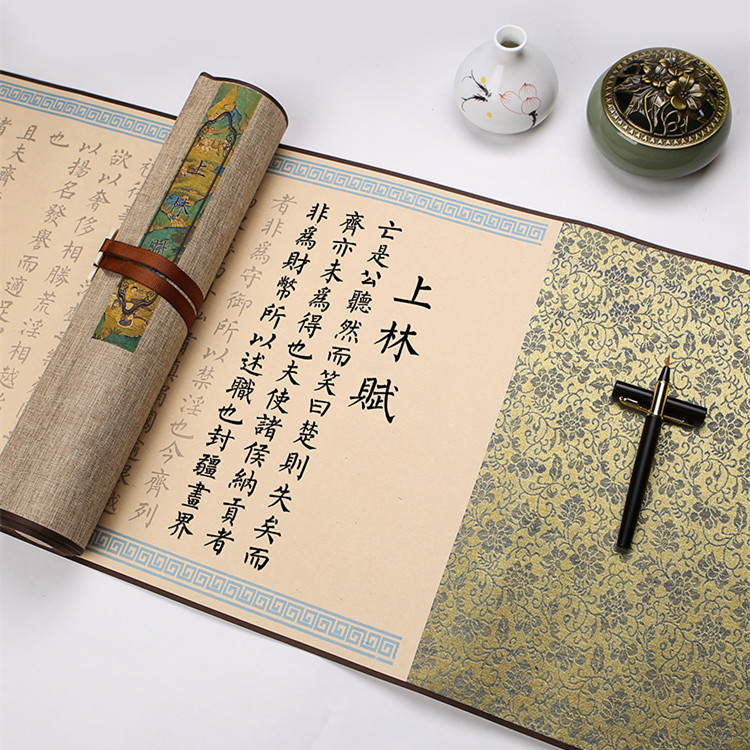 上林賦
亡是公聽然而笑曰楚則失矣而
齊亦未爲得也夫使諸侯納貢者
非爲財幣所以述職也封疆畫界
者非爲守御所以禁淫也今齊列
上林賦
欲以奢侈相勝荒淫相越
以揚名發譽而適足
也
且夫齊
者